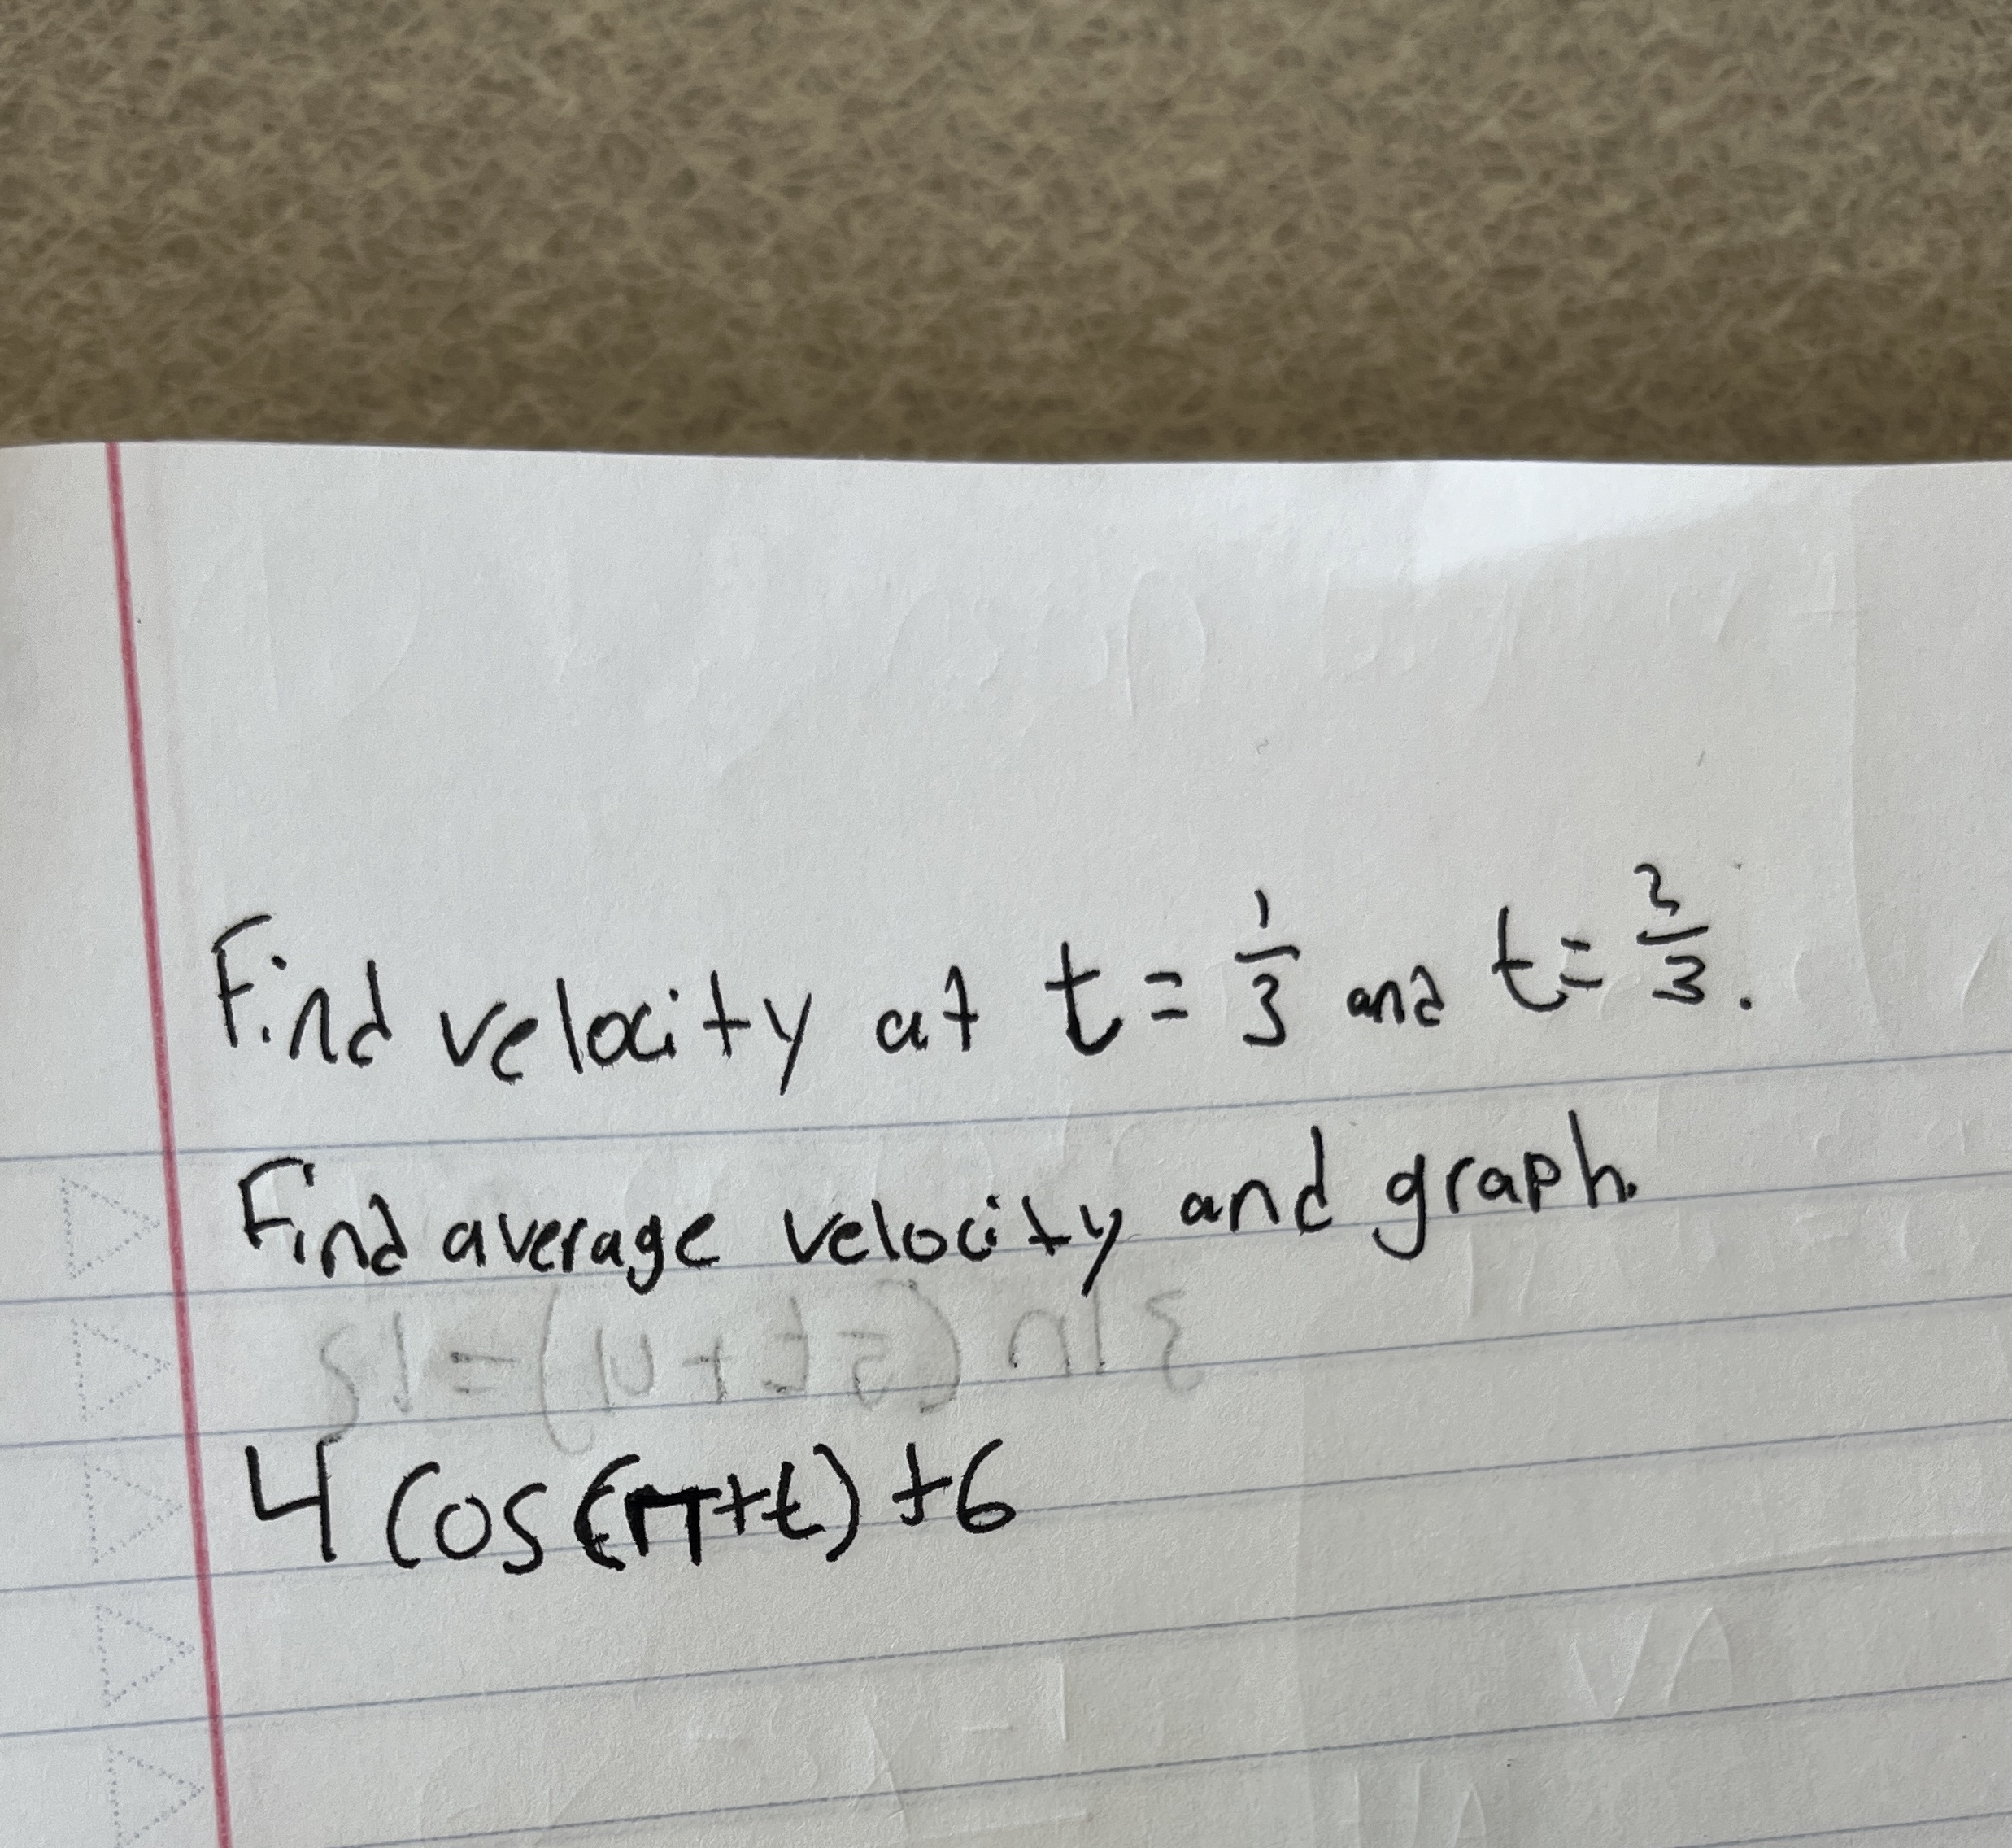 Find velocity at t = 1/3 and t = 2/3.
Find average velocity and graph.
3 ln (5t + 4) = 13
4 cos(π+t) + 6